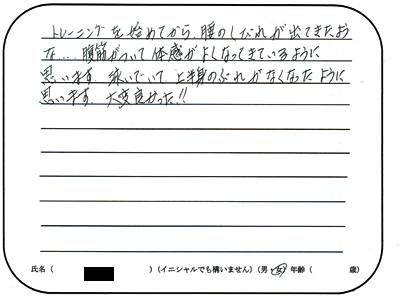 トレーニングを始めてから、腰のくびれが出てきたお
な… 腹筋がついて体感がよくなってきているように
思います。泳いでいて上半身のぶれがなくなったように
思います。大変良かった!!
氏名（ ）（イニシャルでも構いません）（男・女）年齢（ 歳）